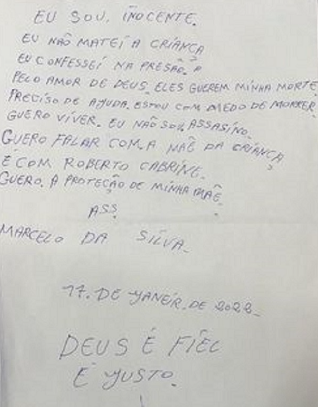 EU SOU. INOCENTE.
EU NÃO MATEI A CRIANÇA
EU CONFESSEI NA PRESÃO.
PELO AMOR DE DEUS. ELES QUEREM MINHA MORTE
PRECISO DE AJUDA. ESTOU COM MEDO DE MORRER.
QUERO VIVER. EU NÃO SOU ASSASINO.
QUERO FALAR COM A MÃE DA CRIANÇA
E COM ROBERTO CABRINE.
QUERO. A PROTEÇÃO DE MINHA MÃE.
ASS.
MARCELO DA SILVA.
17. DE YANEIR. DE 2022.
DEUS É FIEL
E YUSTO.